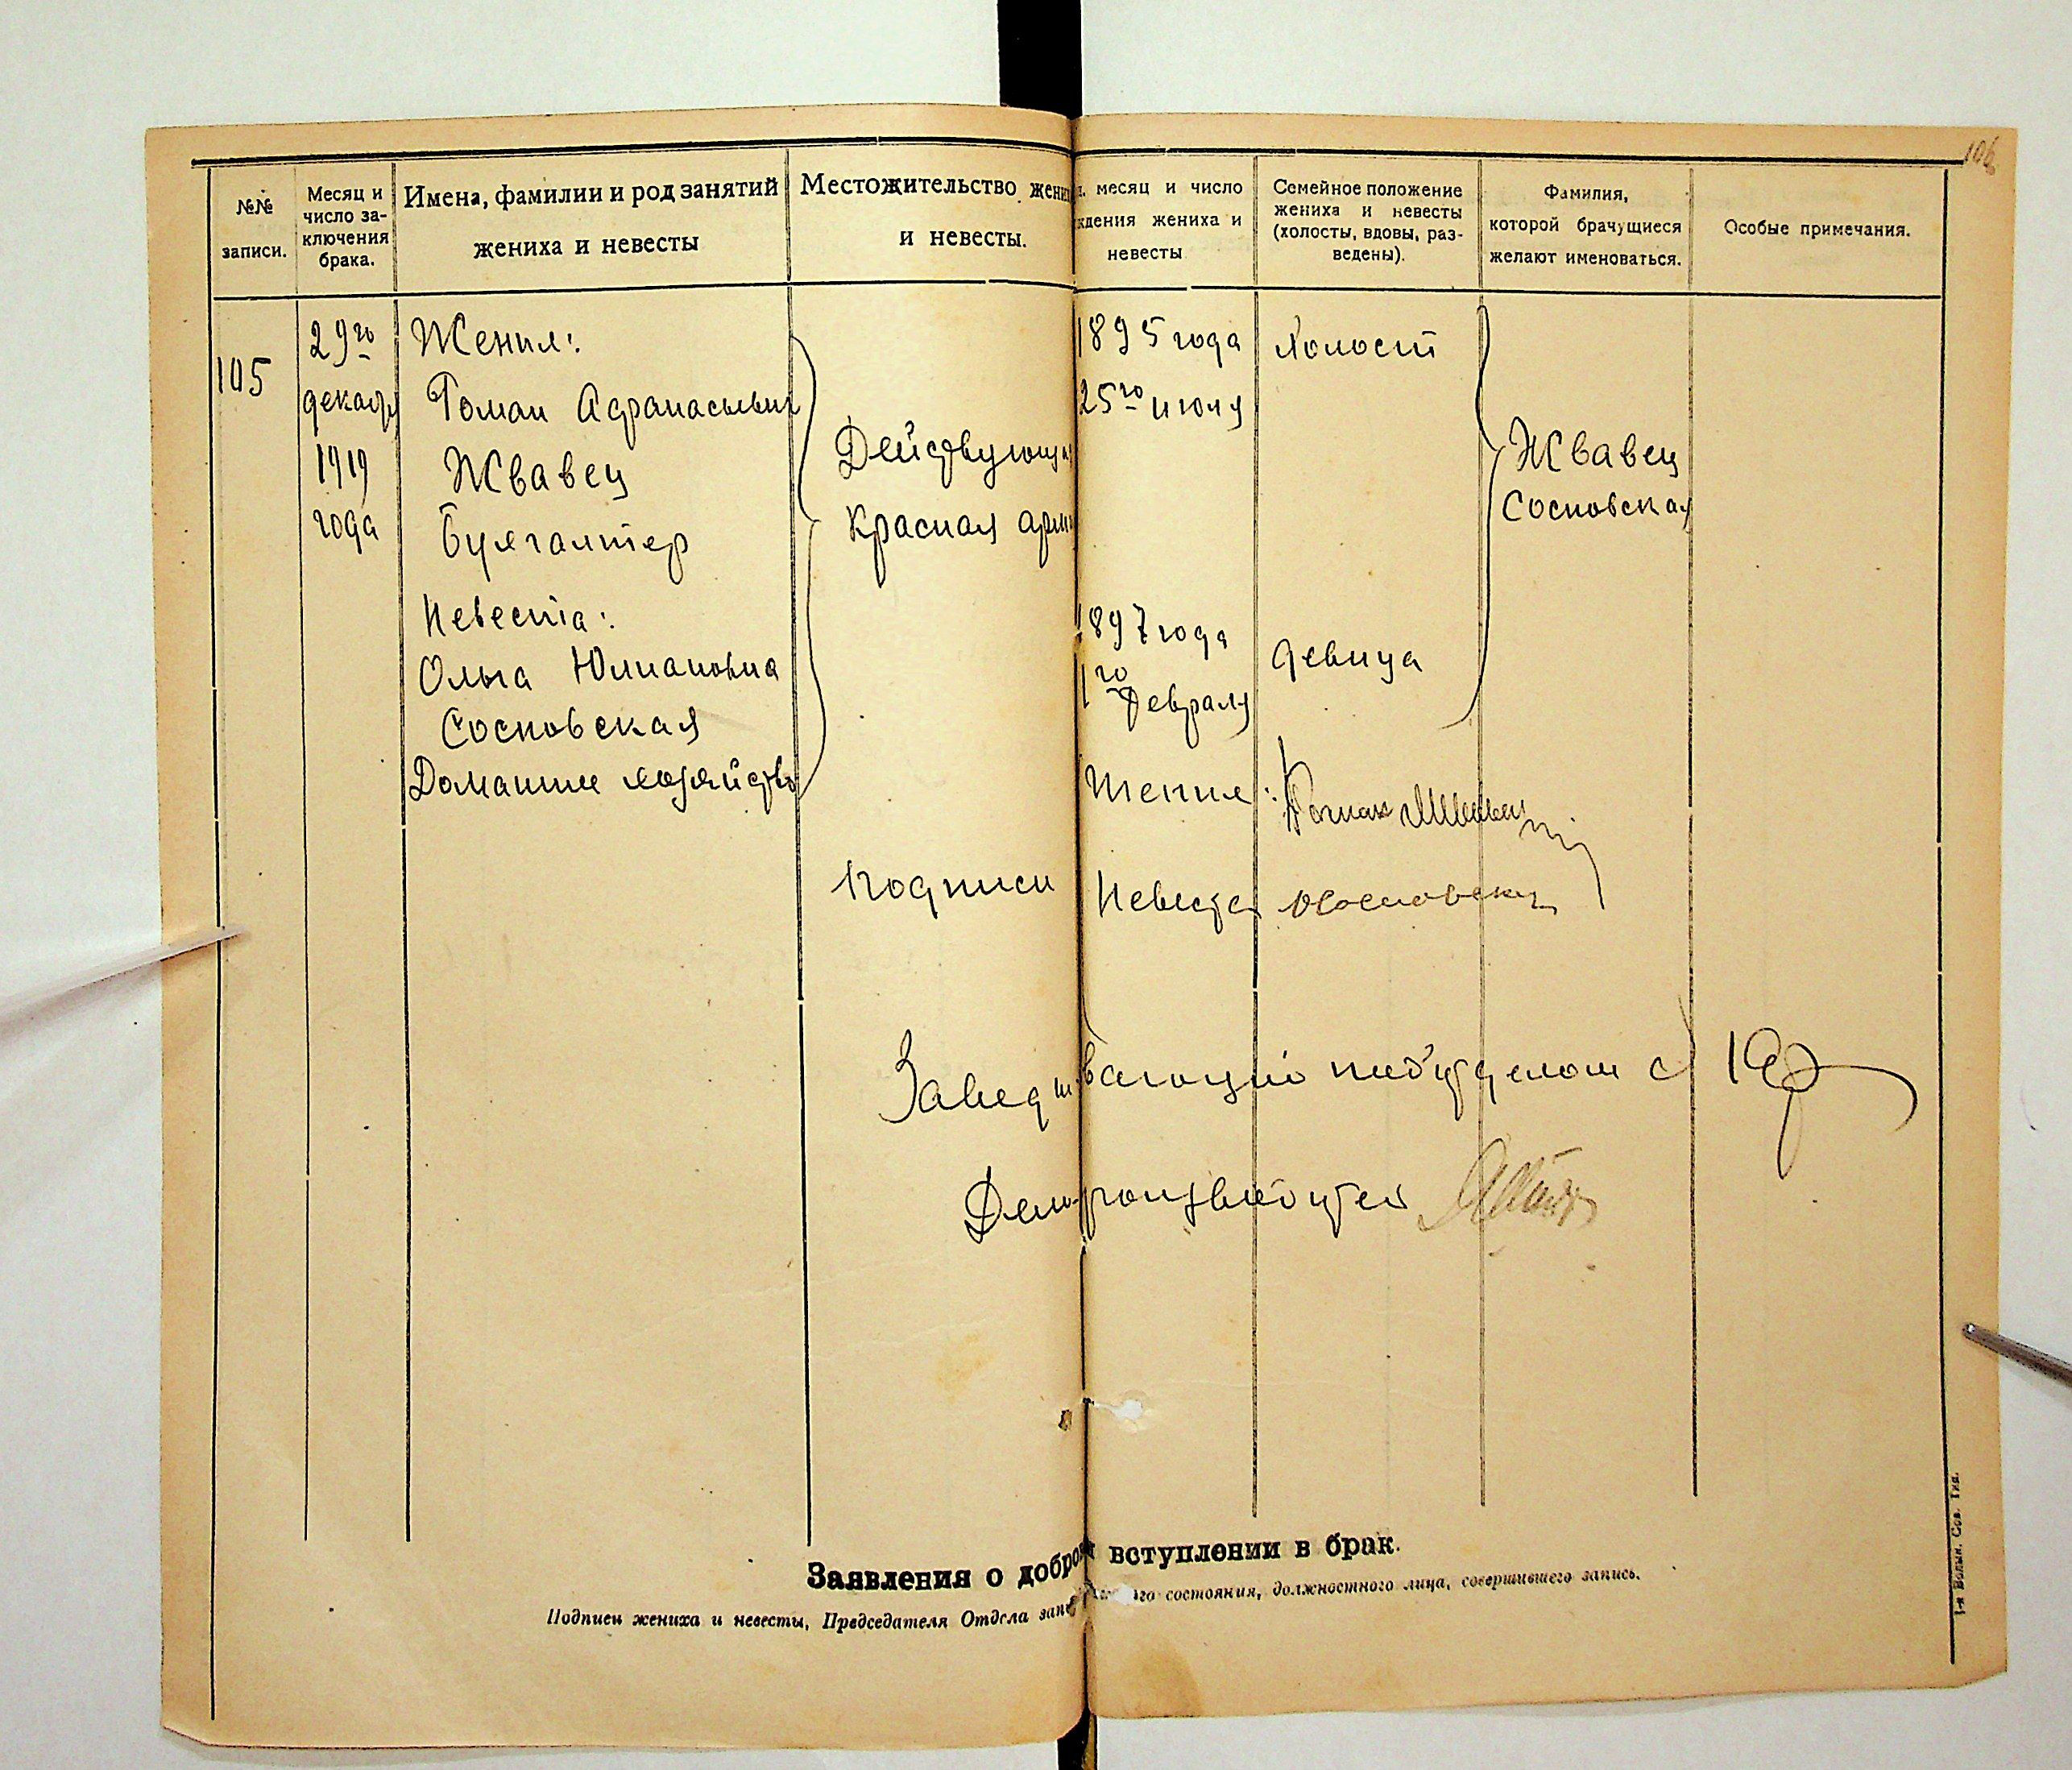 106
№№
записи.
Месяц и
число за-
ключения
брака.
Имена, фамилии и род занятий
жениха и невесты
Местожительство жени
и невесты.
месяц и число
ждения жениха и
невесты
Семейное положение
жениха и невесты
(холосты, вдовы, раз-
ведены).
Фамилия,
которой брачущиеся
желают именоваться.
Особые примечания.
105
29го
декабря
1919
года
Жених:
Роман Афанасьевич
Жвавец
Бухгалтер
Невеста:
Ольга Юлиановна
Сосновская
Домашнее хозяйство
Действующая
Красная арми
1895 года
25го июля
1897 года
1го февраля
Холост
девица
Жвавец
Сосновская
Подписи
Жених:
Роман
Невеста
ОСосновская
Заведывающий подотделом
Делопроизводител
Заявления о добро вступлении в брак.
Подписи жениха и невесты, Председателя Отдела запи го состояния, должностного лица, совершившего запись.
1-я Волын. Сов. Тип.